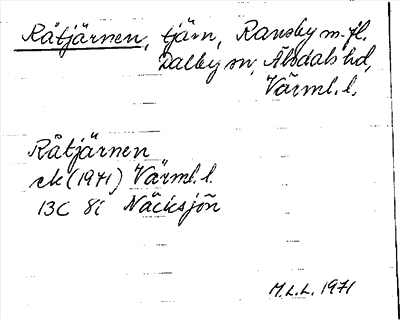 Råtjärnen, tjärn, Ransby m.fl.
Dalby sn, Älvdals hd,
Värml. l.
Råtjärnen
ek (1971) Värml. l.
13C 8i Näcksjön
M.L.L. 1971